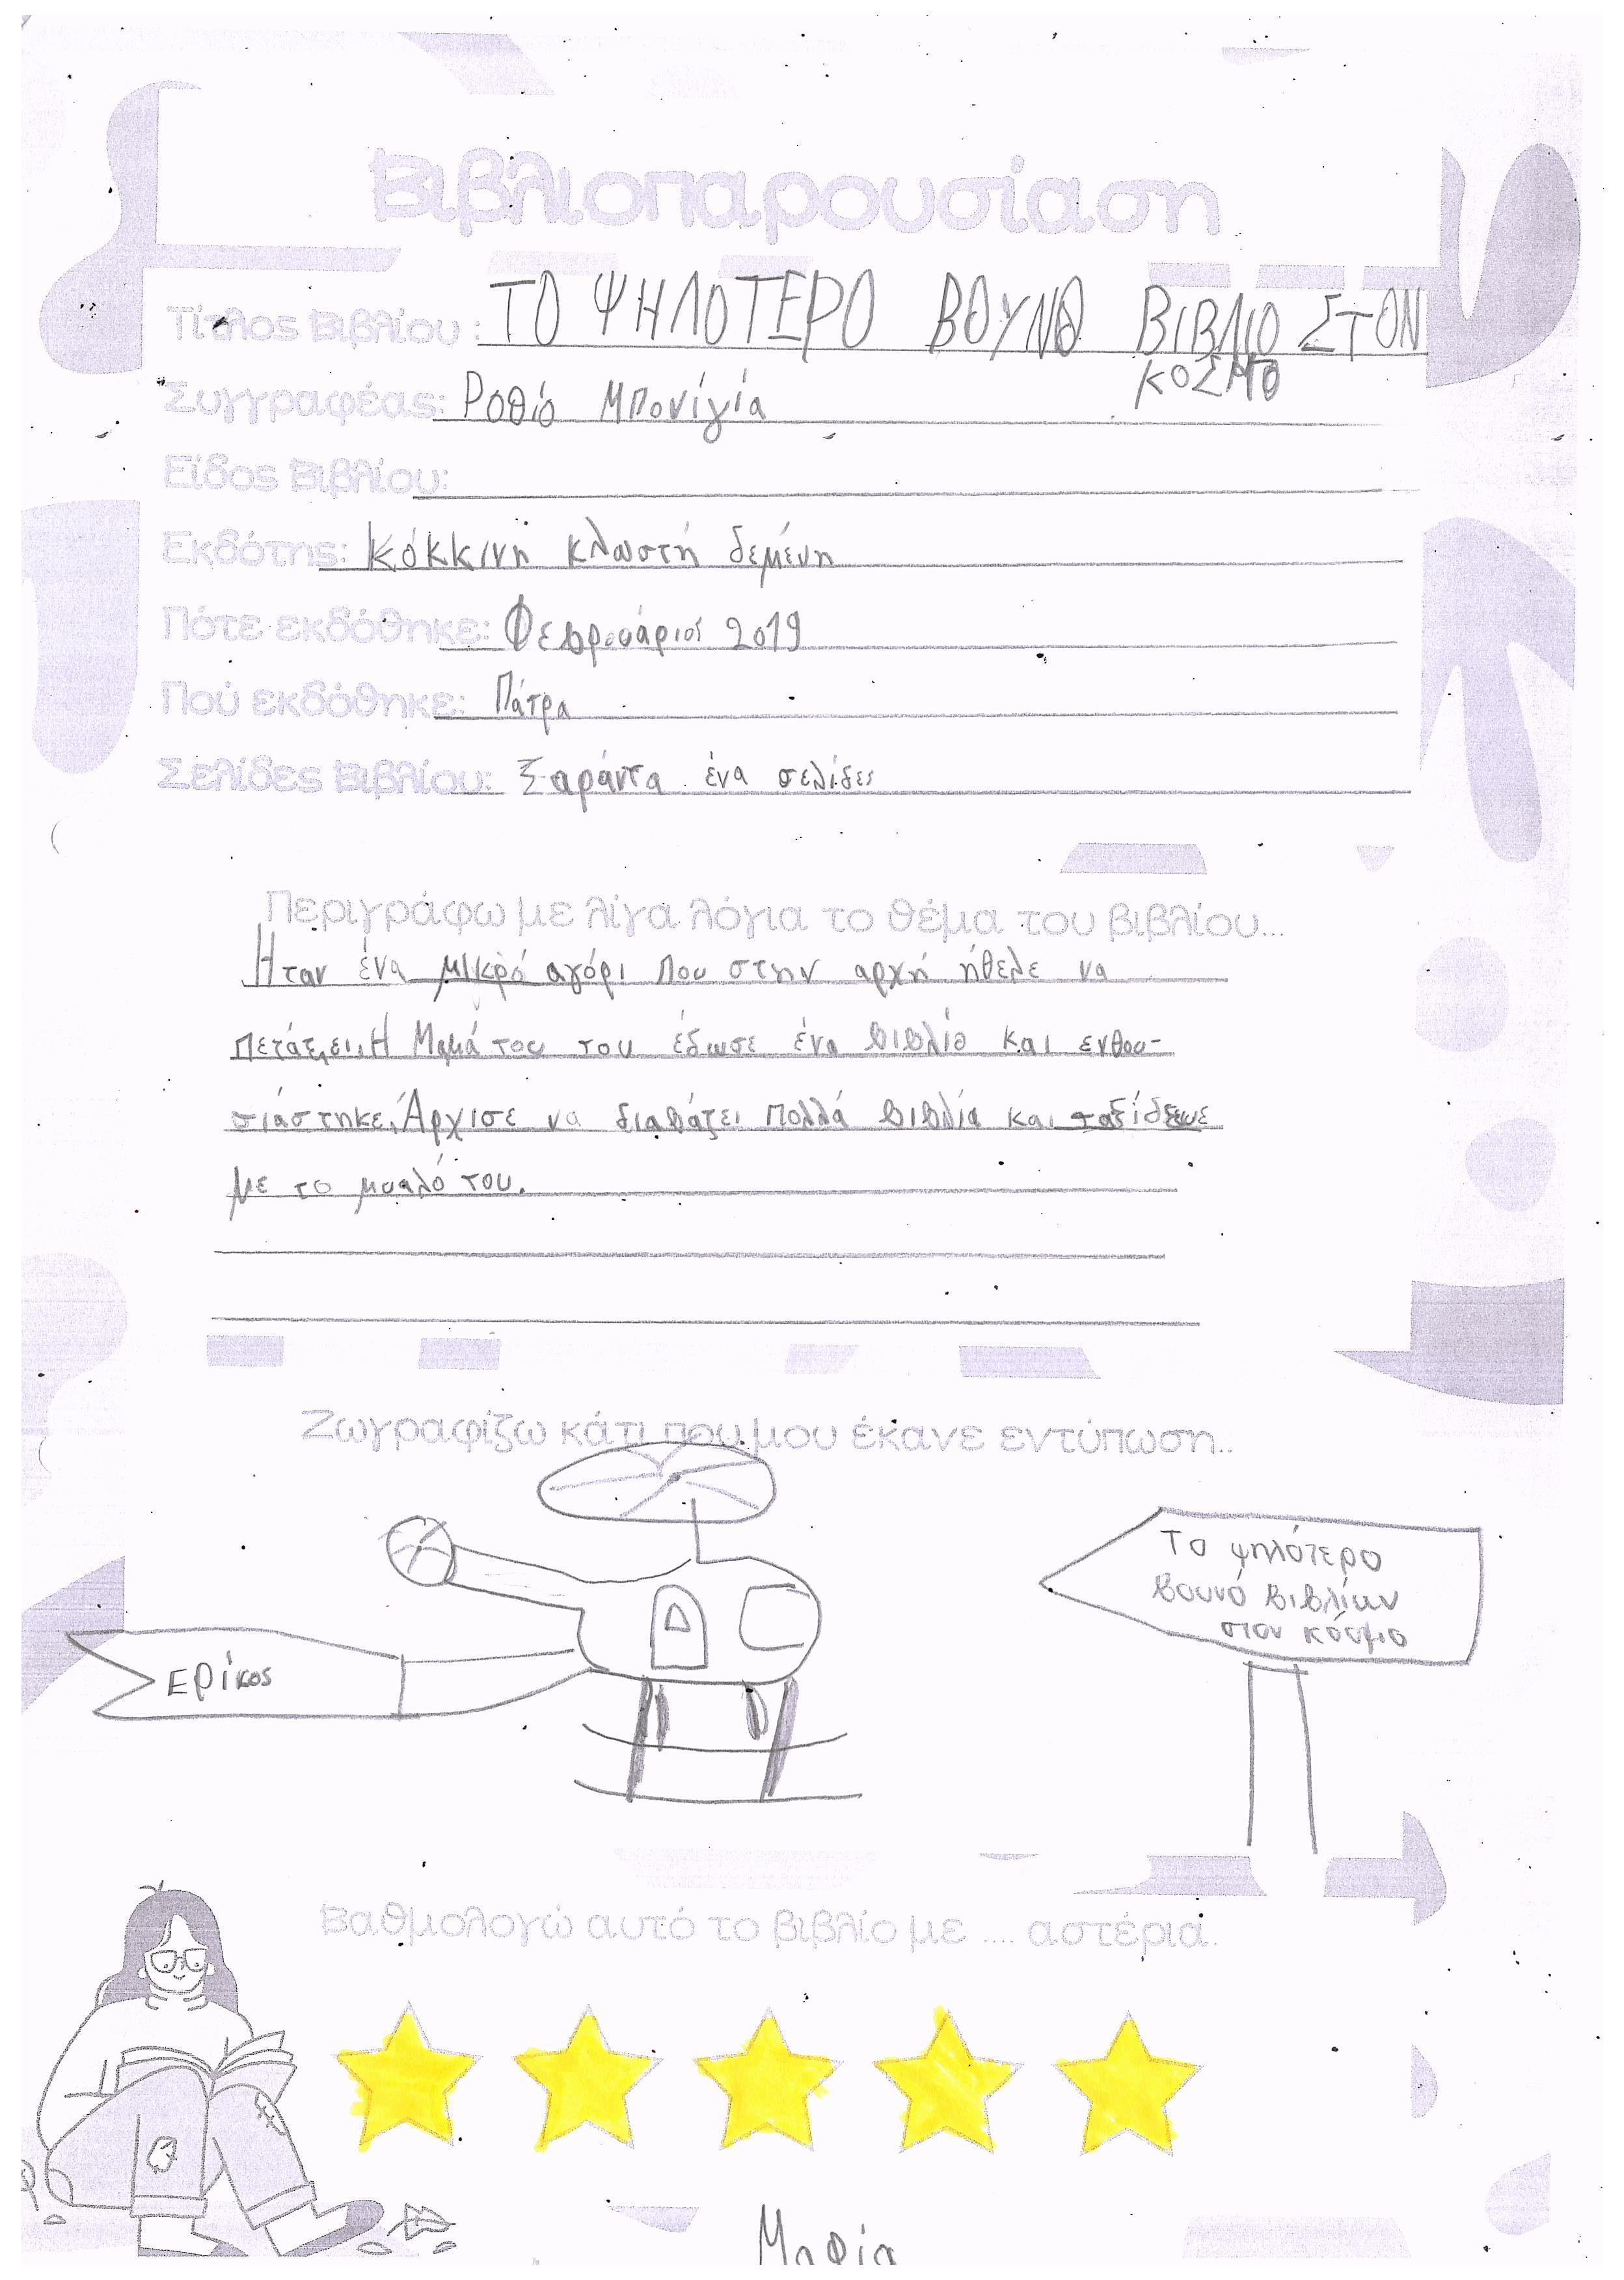 Βιβλιοπαρουσίαση
Τίτλος Βιβλίου: ΤΟ ΨΗΛΟΤΕΡΟ ΒΟΥΝΟ ΒΙΒΛΙΟ ΣΤΟΝ
ΚΟΣΜΟ
Συγγραφέας: Ροθίο Μπονίγία
Είδος Βιβλίου:
Εκδότης: Κόκκινη κλωστή δεμένη
Πότε εκδόθηκε: Φεβρουάριος 2019
Πού εκδόθηκε: Πάτρα
Σελίδες Βιβλίου: Σαράντα ένα σελίδες
Περιγράφω με λίγα λόγια το θέμα του βιβλίου...
Ηταν ένα μικρό αγόρι που στην αρχή ήθελε να
πετάξει. Η Μαμά του του έδωσε ένα βιβλίο και ενθου-
σιάστηκε. Άρχισε να διαβάζει πολλά βιβλία και ταξίδεψε
με το μυαλό του.
Ζωγραφίζω κάτι που μου έκανε εντύπωση..
Το ψηλότερο
βουνό βιβλίων
στον κόσμο
Ερίκος
Βαθμολογώ αυτό το βιβλίο με .... αστέρια.